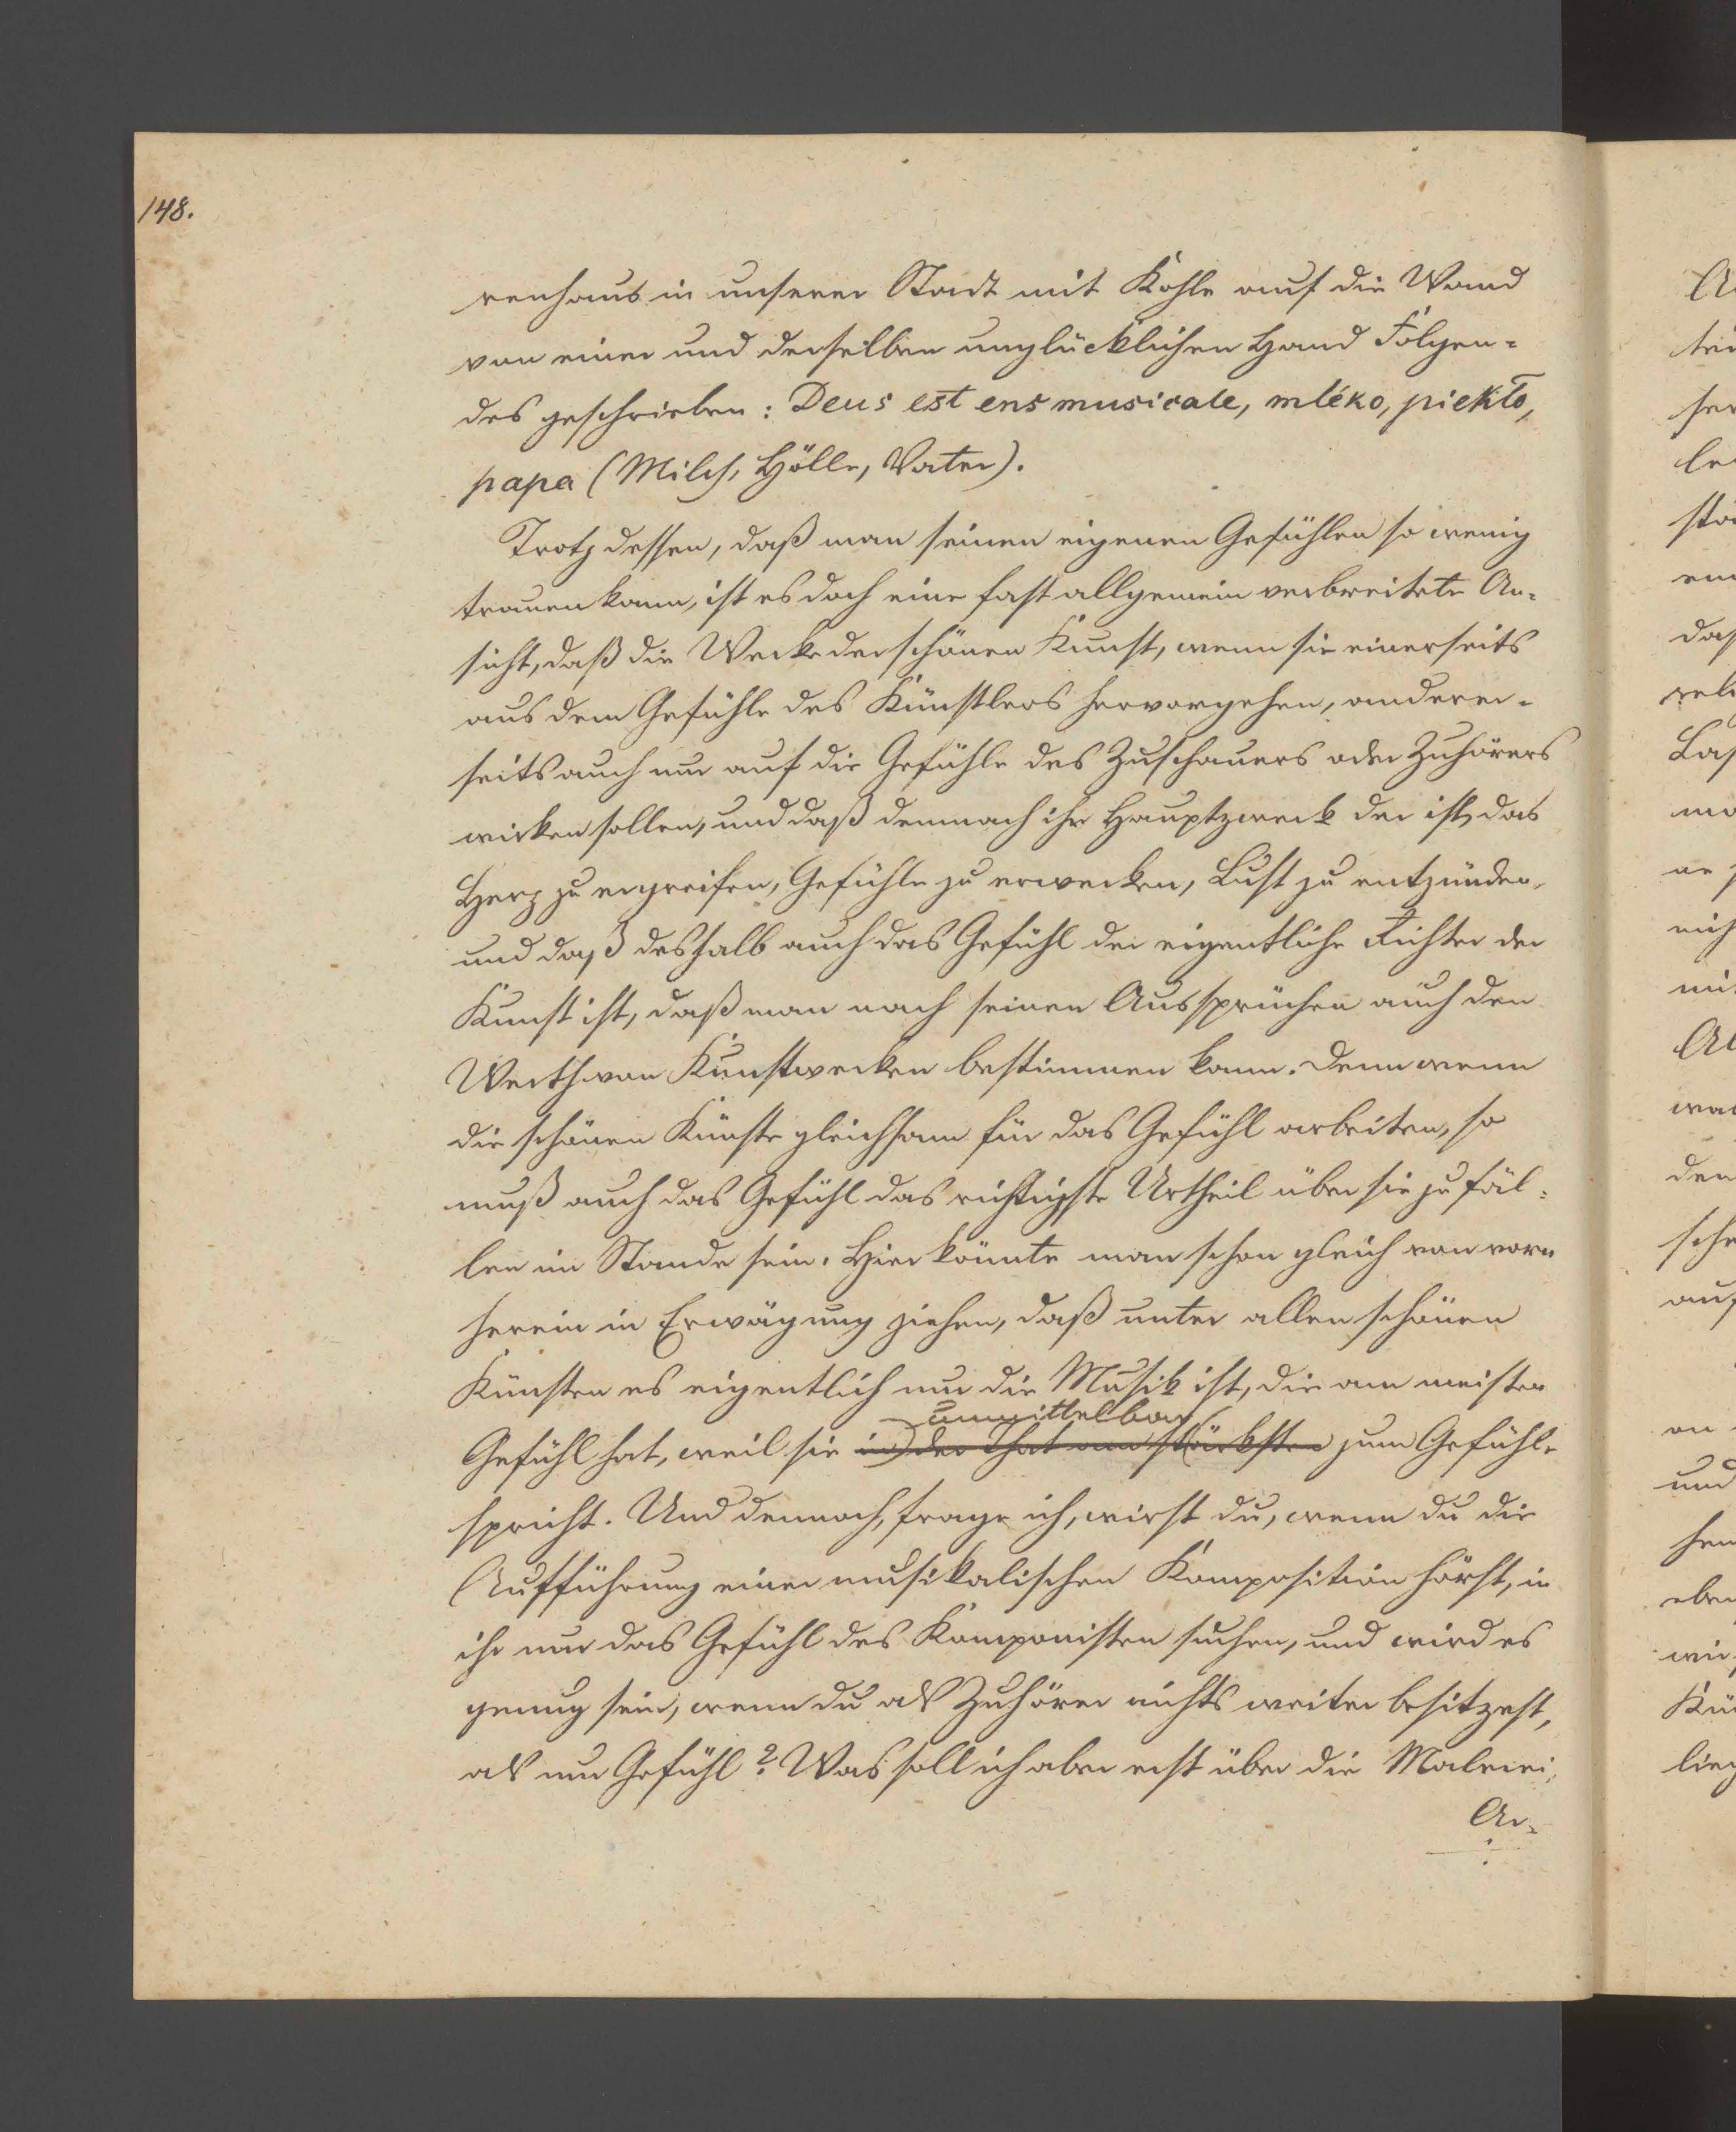 148.
renhaus in unserer Stadt mit Kohle auf die Wand
von einer und derselben unglücklichen Hand Folgen-
des geschrieben: Deus est ens musicale, mléko, piekło,
papa (Milch, Hölle, Vater).
Trotz dessen, daß man seinen eigenen Gefühlen so wenig
trauen kann, ist es doch eine fast allgemein verbreitete An-
sicht, daß die Werke der schönen Kunst, wenn sie einerseits
aus dem Gefühle des Künstlers hervorgehen, anderer-
seits auch nur auf die Gefühle des Zuschauers oder Zuhörers
wirken sollen, und daß demnach ihr Hauptzweck der ist, das
Herz zu ergreifen, Gefühle zu erwecken, Lust zu entzünden,
und daß deshalb auch das Gefühl der eigentliche Richter der
Kunst ist, daß man nach seinen Aussprüchen auch den
Werth von Kunstwerken bestimmen kann. Denn wenn
die schönen Künste gleichsam für das Gefühl arbeiten, so
muß auch das Gefühl das richtigste Urtheil über sie zu fäl-
len im Stande sein. Hier könnte man schon gleich von vorn
herein in Erwägung ziehen, daß unter allen schönen
Künsten es eigentlich nur die Musik ist, die am meisten
unmittelbar
Gefühl hat, weil sie in der That am stärksten zum Gefühle
spricht. Und dennoch, frage ich, wirst du, wenn du die
Aufführung einer musikalischen Komposition hörst, in
ihr nur das Gefühl des Komponisten suchen, und wird es
genug sein, wenn du als Zuhörer nichts weiter besitzest,
als nur Gefühl? Was soll ich aber erst über die Malerei,
Ar-